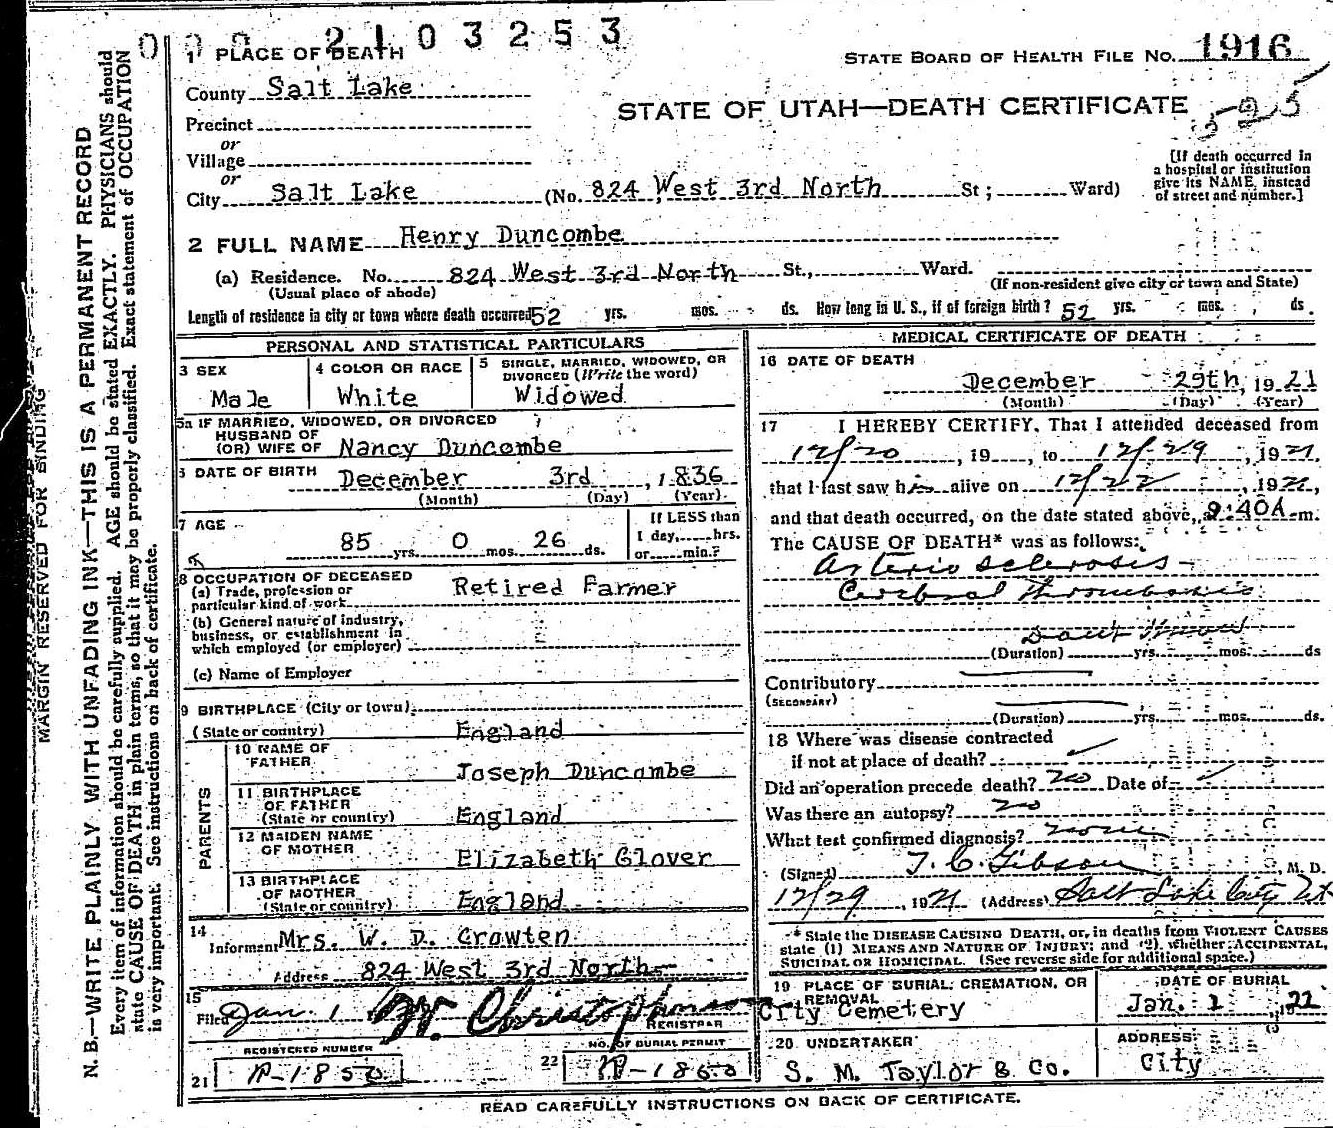 0 0 0 2 1 0 3 2 5 3
1 PLACE OF DEATH
STATE BOARD OF HEALTH FILE NO. 1916
County Salt Lake
STATE OF UTAH—DEATH CERTIFICATE
Precinct
or
Village
or
City Salt Lake (No. 824 West 3rd North St; Ward)
[If death occurred in
a hospital or institution
give its NAME, instead
of street and number.]
2 FULL NAME Henry Duncombe
(a) Residence. No. 824 West 3rd North St., Ward.
(Usual place of abode) (If non-resident give city or town and State)
Length of residence in city or town where death occurred 52 yrs. mos. ds. How long in U. S., if of foreign birth? 52 yrs. mos. ds.
PERSONAL AND STATISTICAL PARTICULARS
3 SEX
Male
4 COLOR OR RACE
White
5 SINGLE, MARRIED, WIDOWED, OR
DIVORCED (Write the word)
Widowed
5a IF MARRIED, WIDOWED, OR DIVORCED
HUSBAND OF
(OR) WIFE OF Nancy Duncombe
6 DATE OF BIRTH December 3rd, 1836
(Month) (Day) (Year)
7 AGE
85 yrs. 0 mos. 26 ds.
If LESS than
1 day, hrs.
or min.?
8 OCCUPATION OF DECEASED
(a) Trade, profession or
particular kind of work Retired Farmer
(b) General nature of industry,
business, or establishment in
which employed (or employer)
(c) Name of Employer
9 BIRTHPLACE (City or town)
(State or country) England
PARENTS
10 NAME OF
FATHER Joseph Duncombe
11 BIRTHPLACE
OF FATHER
(State or country) England
12 MAIDEN NAME
OF MOTHER Elizabeth Glover
13 BIRTHPLACE
OF MOTHER
(State or country) England
14
Informant Mrs. W. D. Crowten
Address 824 West 3rd North
15
Filed Jan. 1 W. Christophson
REGISTRAR
REGISTERED NUMBER
21
NO. OF BURIAL PERMIT
22
MEDICAL CERTIFICATE OF DEATH
16 DATE OF DEATH
December 29th, 1921
(Month) (Day) (Year)
17 I HEREBY CERTIFY, That I attended deceased from
12/20, 19, to 12/29, 1921
that I last saw him alive on 12/22, 1921,
and that death occurred, on the date stated above, 9:40A m.
The CAUSE OF DEATH* was as follows:
Arterio sclerosis -
Cerebral Thrombosis
Dont Know
(Duration) yrs. mos. ds
Contributory
(SECONDARY)
(Duration) yrs. mos. ds.
18 Where was disease contracted
if not at place of death?
Did an operation precede death? no Date of
Was there an autopsy? no
What test confirmed diagnosis? none
(Signed) T. C. Gibson, M. D.
12/29, 1921 (Address) Salt Lake City Ut
* State the DISEASE CAUSING DEATH, or, in deaths from VIOLENT CAUSES
state (1) MEANS AND NATURE OF INJURY; and (2), whether ACCIDENTAL,
SUICIDAL OR HOMICIDAL. (See reverse side for additional space.)
19 PLACE OF BURIAL, CREMATION, OR
REMOVAL
City Cemetery
DATE OF BURIAL
Jan. 1, 22
20 UNDERTAKER
S. M. Taylor & Co.
ADDRESS
City
READ CAREFULLY INSTRUCTIONS ON BACK OF CERTIFICATE.
MARGIN RESERVED FOR BINDING
N. B.—WRITE PLAINLY WITH UNFADING INK—THIS IS A PERMANENT RECORD
Every item of information should be carefully supplied. AGE should be stated EXACTLY. PHYSICIANS should
state CAUSE OF DEATH in plain terms, so that it may be properly classified. Exact statement of OCCUPATION
is very important. See instructions on back of certificate.